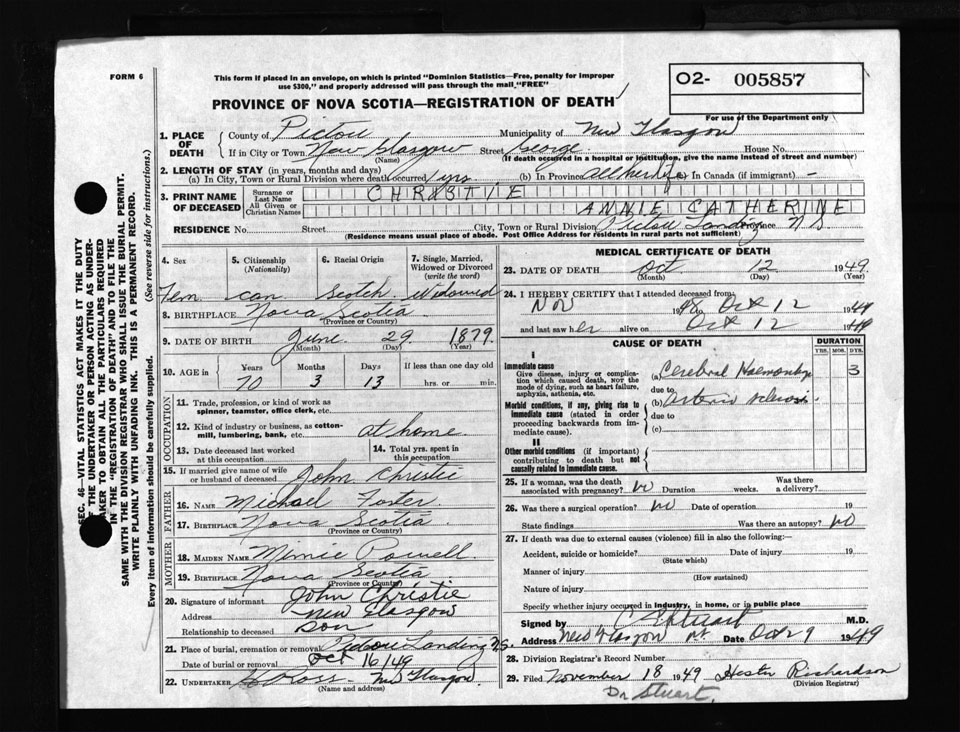 FORM 6
This form if placed in an envelope, on which is printed "Dominion Statistics—Free, penalty for improper
use $300," and properly addressed will pass through the mail "FREE"
O2- 005857
PROVINCE OF NOVA SCOTIA—REGISTRATION OF DEATH
For use of the Department only
1. PLACE OF DEATH County of Pictou Municipality of New Glasgow
If in City or Town New Glasgow Street George House No.
(Name) (If death occurred in a hospital or institution, give the name instead of street and number)
2. LENGTH OF STAY (in years, months and days)
(a) In City, Town or Rural Division where death occurred yrs (b) In Province all her life (c) In Canada (if immigrant) -
3. PRINT NAME OF DECEASED Surname or Last Name CHRISTIE
All Given or Christian Names ANNIE CATHERINE
RESIDENCE No. Street City, Town or Rural Division Pictou Landing Province N S
(Residence means usual place of abode. Post Office Address for residents in rural parts not sufficient)
4. Sex 5. Citizenship (Nationality) 6. Racial Origin 7. Single, Married, Widowed or Divorced (write the word)
Fem can Scotch Widowed
8. BIRTHPLACE Nova Scotia
(Province or Country)
9. DATE OF BIRTH June 29 1879
(Month) (Day) (Year)
10. AGE in Years Months Days If less than one day old
70 3 13 hrs. or min.
OCCUPATION
11. Trade, profession, or kind of work as
spinner, teamster, office clerk, etc.
12. Kind of industry or business, as cotton-
mill, lumbering, bank, etc. at home
13. Date deceased last worked at this occupation
14. Total yrs. spent in this occupation
15. If married give name of wife
or husband of deceased John Christie
FATHER
16. NAME Michael Foster
17. BIRTHPLACE Nova Scotia
(Province or Country)
MOTHER
18. MAIDEN NAME Minnie Powell
19. BIRTHPLACE Nova Scotia
(Province or Country)
20. Signature of informant John Christie
Address New Glasgow
Relationship to deceased son
21. Place of burial, cremation or removal Pictou Landing N.S.
Date of burial or removal Oct 16/49
22. UNDERTAKER Ross New Glasgow
(Name and address)
MEDICAL CERTIFICATE OF DEATH
23. DATE OF DEATH Oct 12 1949
(Month) (Day) (Year)
24. I HEREBY CERTIFY that I attended deceased from:
Nov 1948 Oct 12 1949
and last saw her alive on Oct 12 1949
CAUSE OF DEATH
DURATION
YRS. MOS. DYS.
I
Immediate cause
Give disease, injury or compli-
cation which caused death, NOT the
mode of dying, such as heart failure,
asphyxia, asthenia, etc.
(a) Cerebral 3
due to
Morbid conditions, if any, giving rise to
immediate cause (stated in order
proceeding backwards from im-
mediate cause).
(b) Arterio sclerosis
due to
(c)
II
Other morbid conditions (if important)
contributing to death but not
causally related to immediate cause.
25. If a woman, was the death
associated with pregnancy? No Duration weeks. Was there a delivery?
26. Was there a surgical operation? No Date of operation 19
State findings Was there an autopsy? No
27. If death was due to external causes (violence) fill in also the following:
Accident, suicide or homicide? Date of injury 19
(State which)
Manner of injury
(How sustained)
Nature of injury
Specify whether injury occurred in industry, in home, or in public place
Signed by Stuart M.D.
Address New Glasgow Date Oct 29 1949
28. Division Registrar's Record Number
29. Filed November 18 1949 Hester Richardson
(Division Registrar)
Dr Stuart
SEC. 46—VITAL STATISTICS ACT MAKES IT THE DUTY
OF THE UNDERTAKER OR PERSON ACTING AS UNDER-
TAKER TO OBTAIN ALL THE PARTICULARS REQUIRED
IN THE "REGISTRATION OF DEATH" AND TO FILE THE
SAME WITH THE DIVISION REGISTRAR WHO SHALL ISSUE THE BURIAL PERMIT.
WRITE PLAINLY WITH UNFADING INK. THIS IS A PERMANENT RECORD.
Every item of information should be carefully supplied. (See reverse side for instructions.)